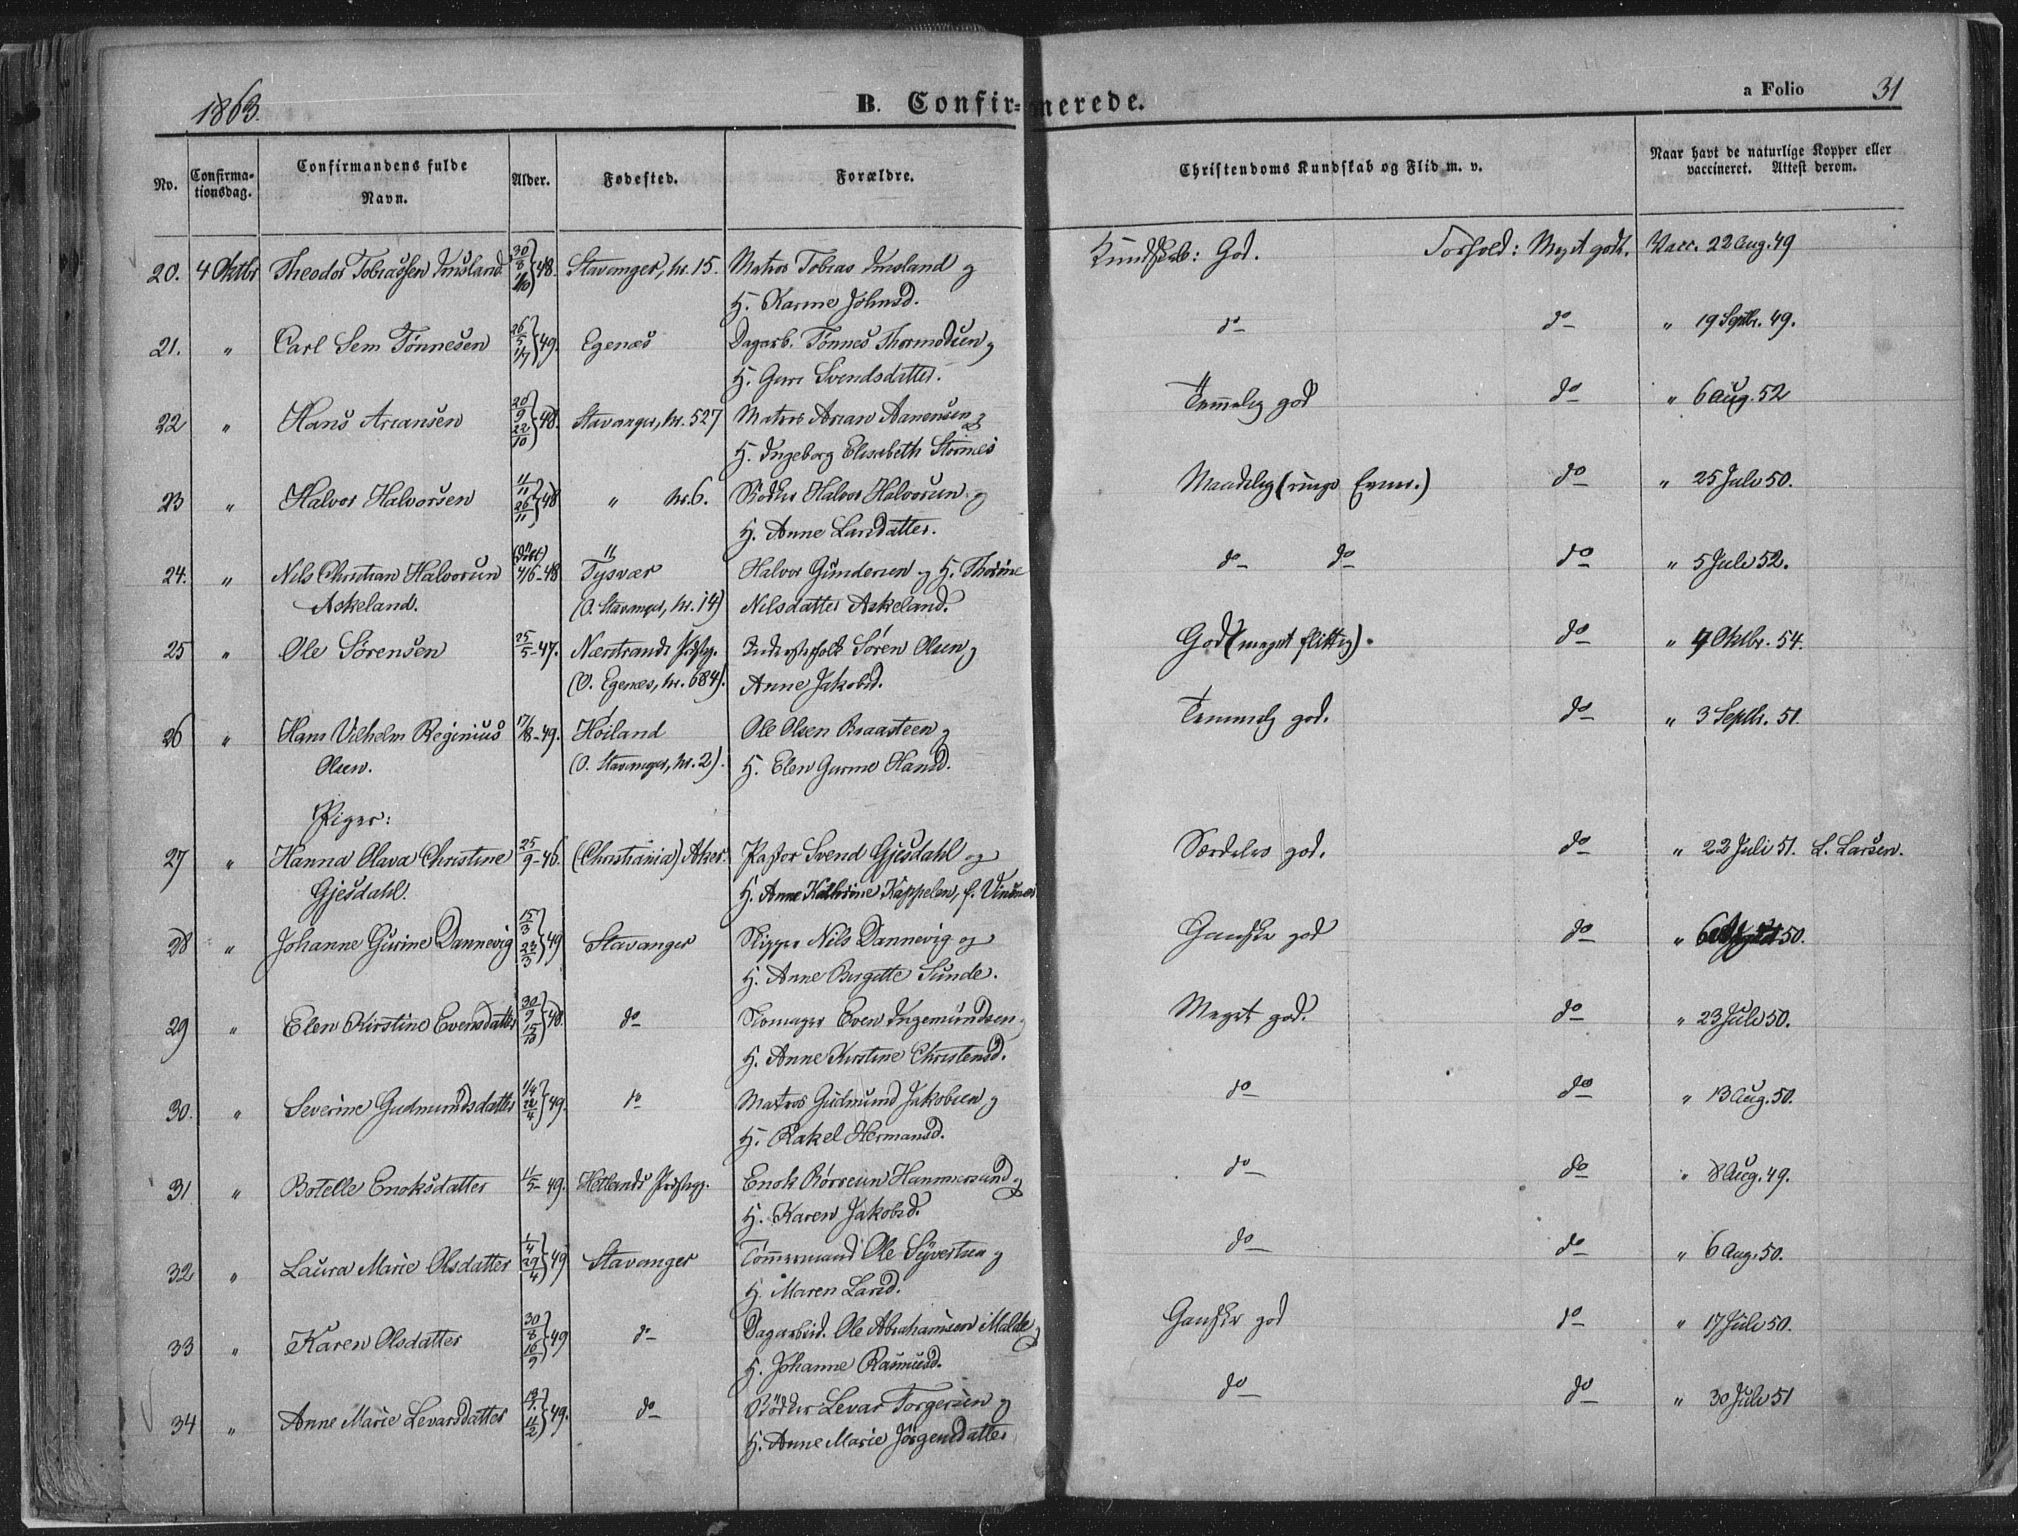 1863.
B. Confirmerede.
a Folio 31
No.
Confirmationsdag.
Confirmandens fulde Navn.
Alder.
Fødested.
Forældre.
Christendoms Kundskab og Flid m. v.
Naar havt de naturlige Kopper eller vaccineret. Attest derom.
20. 4 Oktbr Theodor Tobiassen 30/8 48. Stavanger, nr. 15. Matros Tobias og Kundskab: God. Forhold: Meget godt. Vacc. 22 Aug. 49
H. Karine Johnsd.
21. " Carl Sem Tönnesen 26/5 1/7 } 49. Egenæs Dagarb. Tönnes Thormodsen og do do " 19 Septbr. 49.
H. Guri Svendsdatter.
22 " Hans Ariansen 20/9 22/10 } 48. Stavanger, nr. 527 Matros Arian Aanensen og Temmelig god do " 6 Aug. 52
H. Ingeborg Elisabeth Stornes
23 " Halvor Halvorsen 26/11 } 48 " nr. 6. Bödker Halvor Halvorsen og Maadelig (ringe Evner.) do " 25 Juli 50.
H. Anne Larsdatter.
24. " Nils Christian Halvorsen (döbt) 4/6 - 48 Tysvær Halvor Gundersen og H. Thorine do do do " 5 Juli 52.
Askeland. (O. Stavanger, nr. 14) Nilsdatter Askeland.
25 " Ole Sörensen 25/5 - 47. Nærstrands Prstgj. Inderstfolk Sören Olsen og God (meget flittig). do " 7 Oktbr. 54.
(O. Egenæs, nr. 684). Anne Jakobsd.
26 " Hans Vilhelm Reginius 17/8 - 49. Höiland Ole Olsen Braasteen og Temmelig god. do " 3 Septbr. 51.
Olsen. (O. Stavanger, nr. 2). H. Elen Gurine Hansd.
Piger:
27 " Hanna Olava Christine 25/9 - 46. (Christiania) Aker. Pastor Svend Gjesdahl og Særdeles god. do " 22 Juli 51. L. Larsen.
Gjesdahl. H. Anne Kathrine Kappelen, f.
28 " Johanne Gurine Dannevig 15/3 23/3 } 49 Stavanger Skipper Nils Dannevig og Ganske god do " 50.
H. Anne Bergitte Sunde.
29 " Elen Kirstine Evensdatter 30/9 15/10 } 48. do Skomager Even Ingemundsen Meget god. do " 23 Juli 50.
H. Anne Kirstine Christensd.
30. " Severine Gudmundsdatter 1/4 22/4 } 49. do Matros Gudmund Jakobsen og do do " 13 Aug. 50.
H. Rakel Hermansd.
31 " Botelle Enoksdatter 11/5 - 49. Hetlands Prstgj. Enok Börresen Hammersand og do do " 8 Aug. 49.
H. Karen Jakobsd.
32 " Laura Marie Olsdatter 1/4 29/4 } 49 Stavanger Tömmermand Ole Syvertsen og do do " 6 Aug. 50.
H. Maren Larsd.
33 " Karen Olsdatter 30/8 16/9 } 49 do Dagarbeid. Ole Abrahamsen Malde og Ganske god do " 17 Juli 50.
H. Johanne Rasmusd.
34 " Anne Marie Levarsdatter 11/2 } 49. do Bödker Levar Torgersen og do do " 30 Juli 51
H. Anne Marie Jörgensdatter